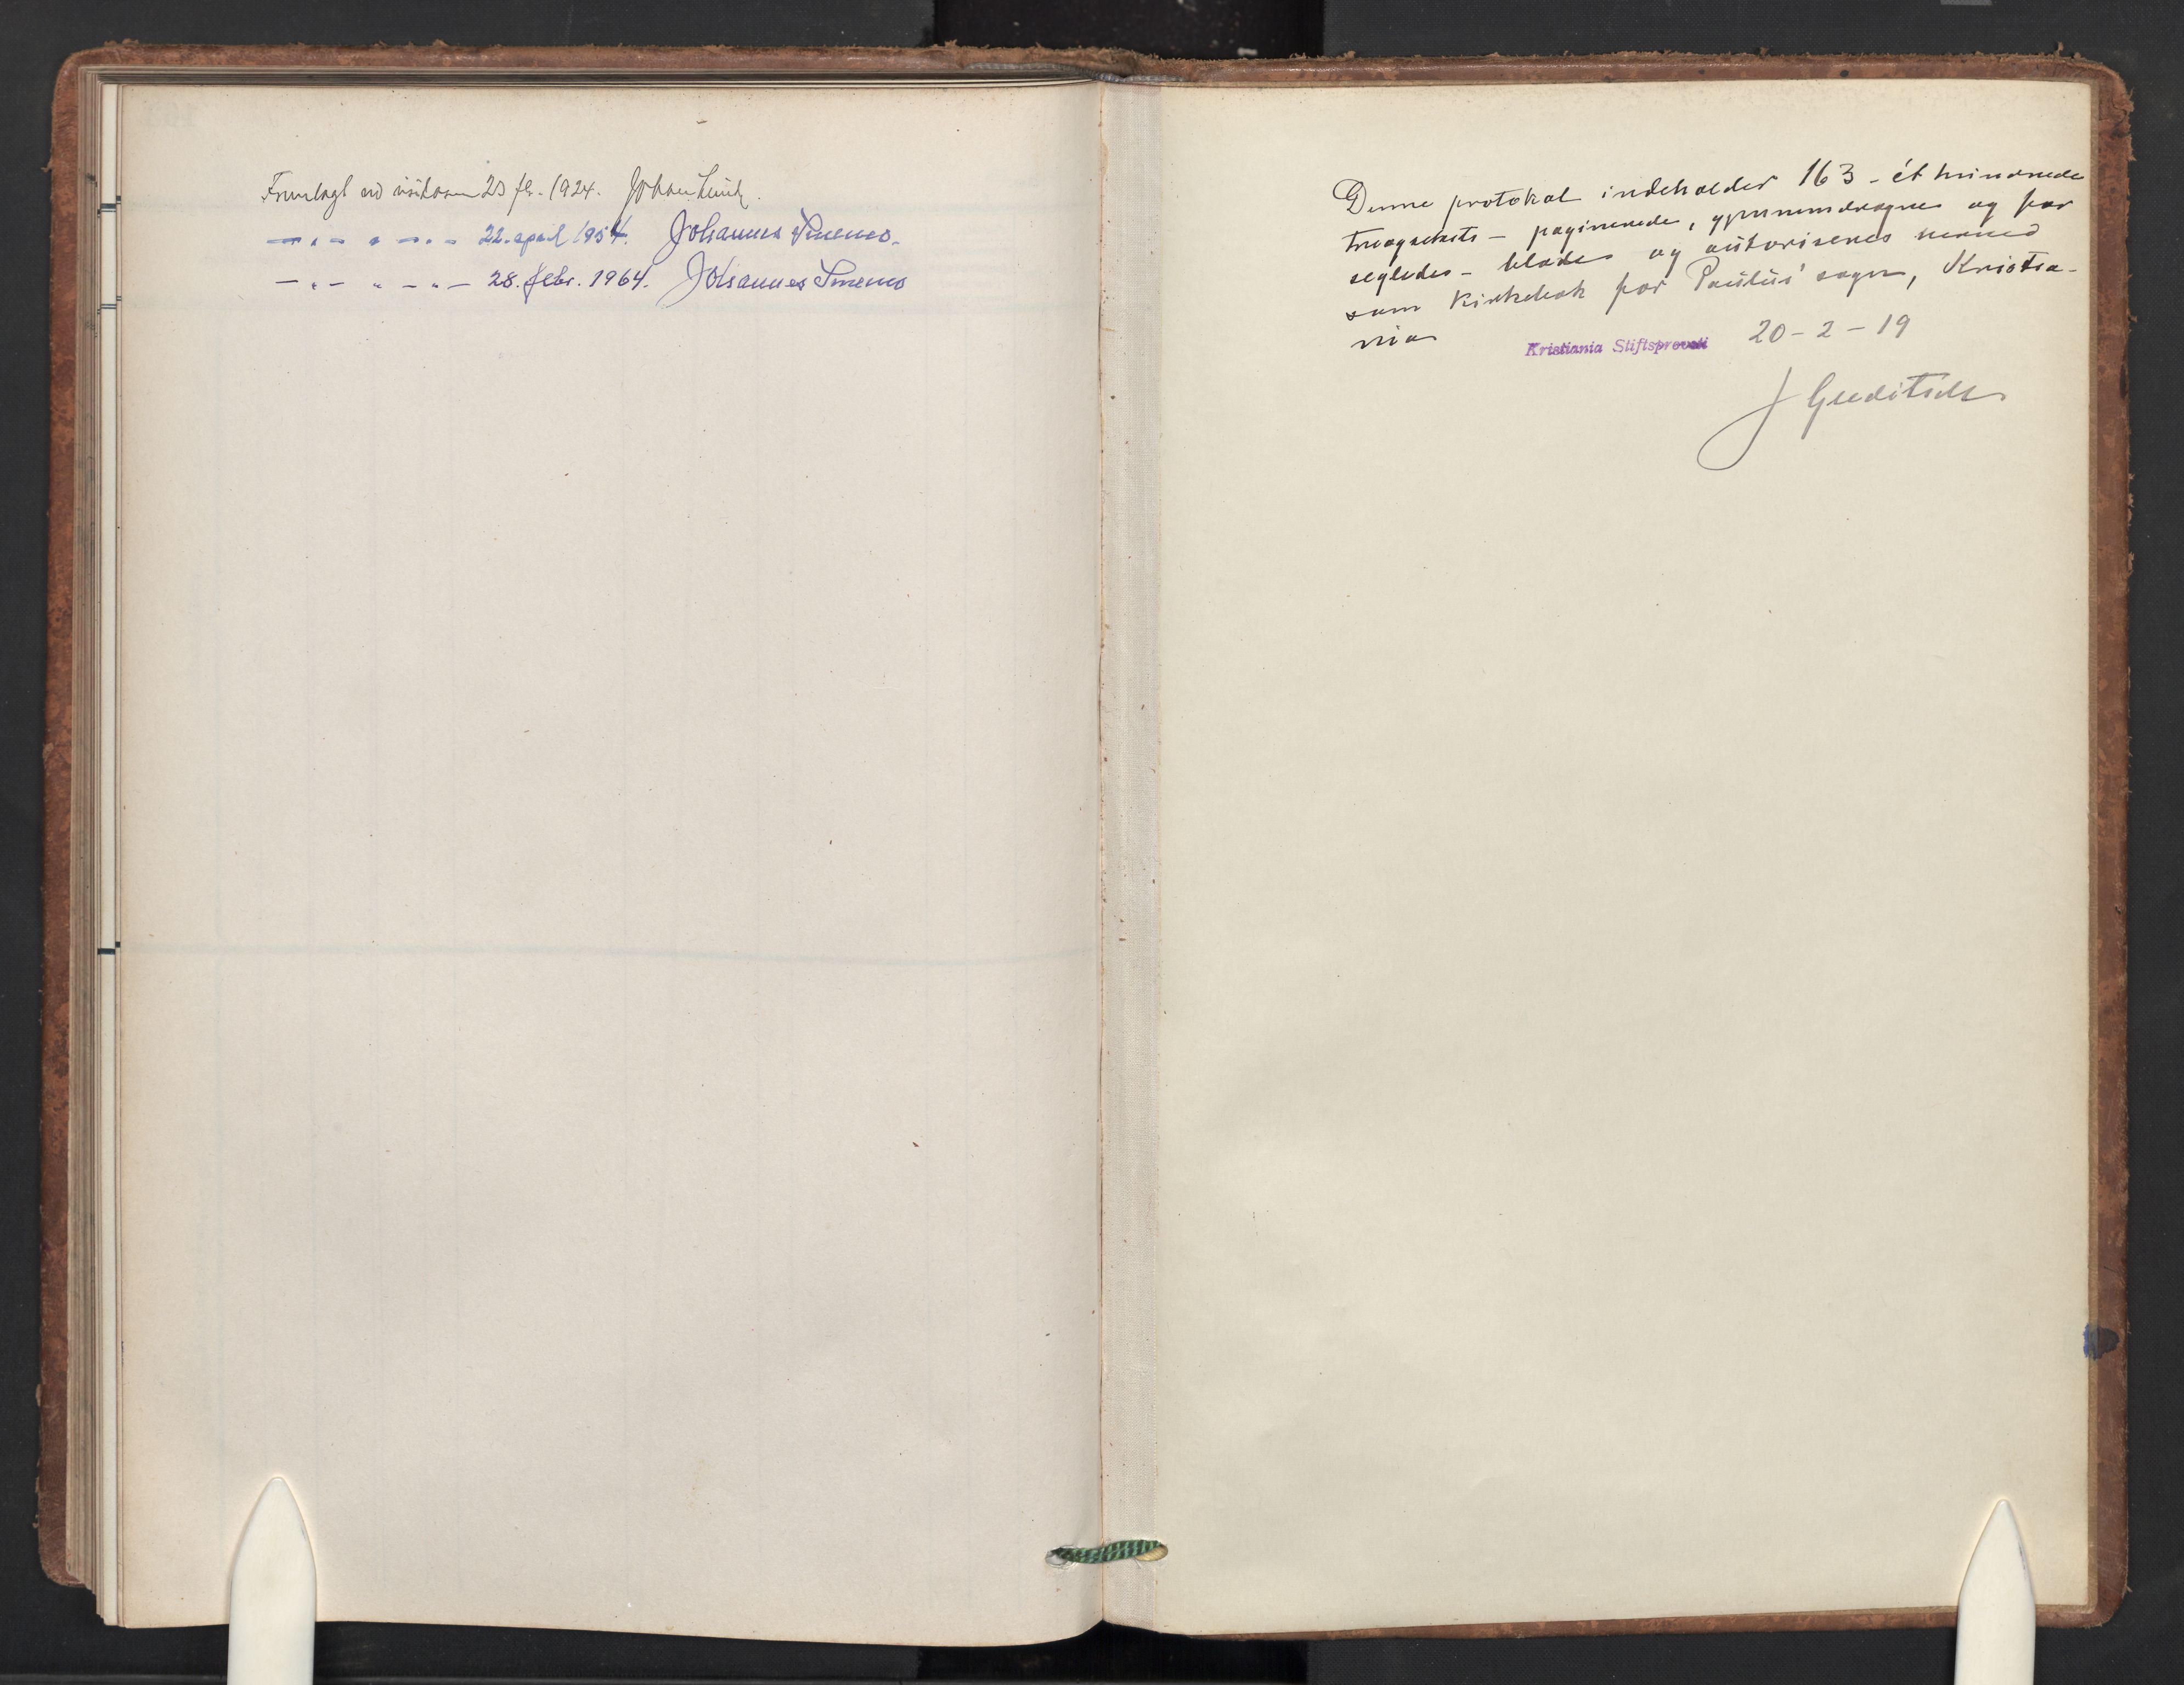 Fremlagt ved visitasen 23 fb. 1924. Johan Lunde.
— " — " — " — 22. april 1954. Johannes Smemo.
— " — " — " — 28. febr. 1964. Johannes Smemo
Denne protokol indeholder 163 - ét hundrede
treogseksti - paginerede, gjennemdragne og for
seglede - blade og autoriseres herved
som kirkebok for Paulus' sogn, Kristia-
nia
Kristiania Stiftsprovsti 20-2-19
J